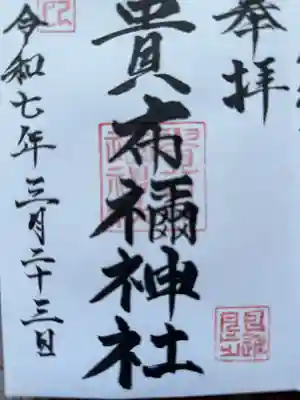 奉拝
貴布禰神社
令和七年三月二十三日